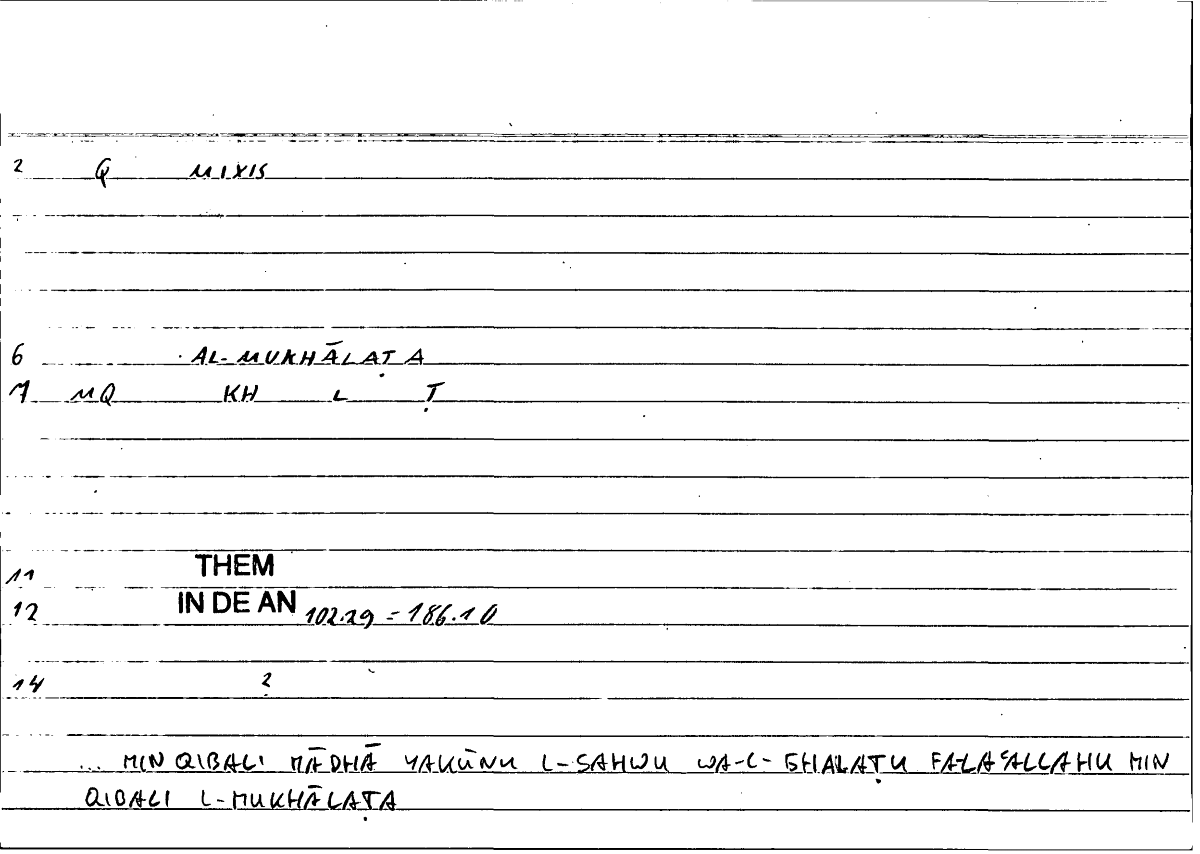 2 Q MIXIS
6 AL-MUKHĀLAṬA
7 MQ KH L Ṭ
11 THEM
12 IN DE AN 102.29 = 186.10
14 2
... MIN QIBALI MĀDHĀ YAKŪNU L-SAHWU WA-L-GHALAṬU FALAʿALLAHU MIN
QIBALI L-MUKHĀLAṬA